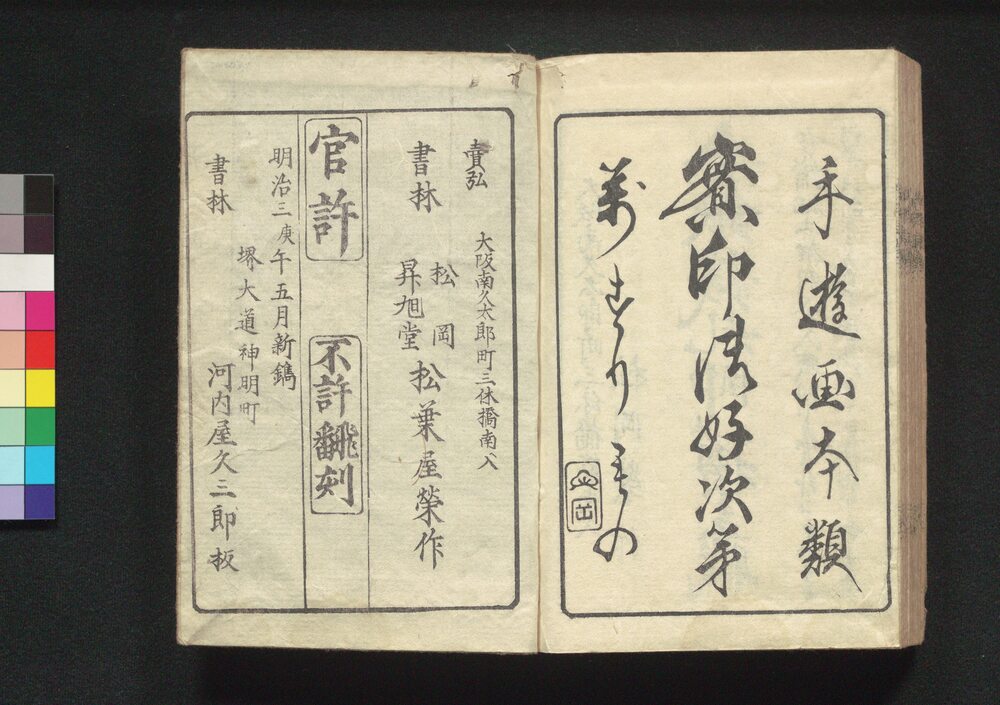 手遊画本類
實印御好次第
萬すりもの
金岡
賣弘
大阪南久太郎町三休橋南入
書林
松岡
昇旭堂
松葉屋榮作
官許
不許飜刻
明治三庚午五月新鐫
堺大道神明町
書林
河内屋久三郎板